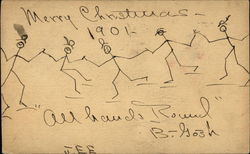 Merry Christmas -
1901-
"All hands Round"
B-Gosh
JEE